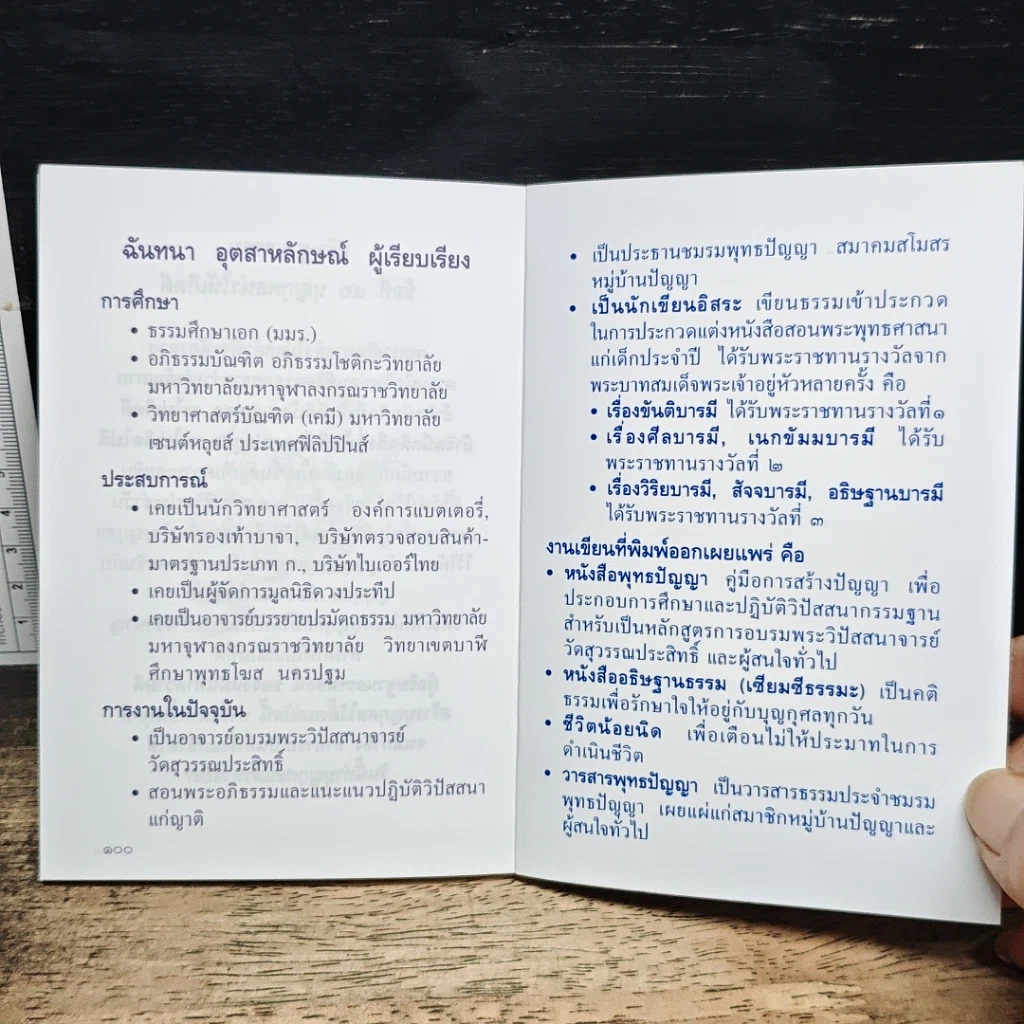 ฉันทนา อุตสาหลักษณ์ ผู้เรียบเรียง
การศึกษา
• ธรรมศึกษาเอก (มมร.)
• อภิธรรมบัณฑิต อภิธรรมโชติกะวิทยาลัย
มหาวิทยาลัยมหาจุฬาลงกรณราชวิทยาลัย
• วิทยาศาสตร์บัณฑิต (เคมี) มหาวิทยาลัย
เซนต์หลุยส์ ประเทศฟิลิปปินส์
ประสบการณ์
• เคยเป็นนักวิทยาศาสตร์ องค์การแบตเตอรี่,
บริษัทรองเท้าบาจา, บริษัทตรวจสอบสินค้า-
มาตรฐานประเภท ก., บริษัทไบเออร์ไทย
• เคยเป็นผู้จัดการมูลนิธิดวงประทีป
• เคยเป็นอาจารย์บรรยายปรมัตถธรรม มหาวิทยาลัย
มหาจุฬาลงกรณราชวิทยาลัย วิทยาเขตบาฬี
ศึกษาพุทธโฆส นครปฐม
การงานในปัจจุบัน
• เป็นอาจารย์อบรมพระวิปัสสนาจารย์
วัดสุวรรณประสิทธิ์
• สอนพระอภิธรรมและแนะแนวปฏิบัติวิปัสสนา
แก่ญาติ
๑๐๐
• เป็นประธานชมรมพุทธปัญญา สมาคมสโมสร
หมู่บ้านปัญญา
• เป็นนักเขียนอิสระ เขียนธรรมเข้าประกวด
ในการประกวดแต่งหนังสือสอนพระพุทธศาสนา
แก่เด็กประจำปี ได้รับพระราชทานรางวัลจาก
พระบาทสมเด็จพระเจ้าอยู่หัวหลายครั้ง คือ
• เรื่องขันติบารมี ได้รับพระราชทานรางวัลที่๑
• เรื่องศีลบารมี, เนกขัมมบารมี ได้รับ
พระราชทานรางวัลที่ ๒
• เรื่องวิริยบารมี, สัจจบารมี, อธิษฐานบารมี
ได้รับพระราชทานรางวัลที่ ๓
งานเขียนที่พิมพ์ออกเผยแพร่ คือ
• หนังสือพุทธปัญญา คู่มือการสร้างปัญญา เพื่อ
ประกอบการศึกษาและปฏิบัติวิปัสสนากรรมฐาน
สำหรับเป็นหลักสูตรการอบรมพระวิปัสสนาจารย์
วัดสุวรรณประสิทธิ์ และผู้สนใจทั่วไป
• หนังสืออธิษฐานธรรม (เซียมซีธรรมะ) เป็นคติ
ธรรมเพื่อรักษาใจให้อยู่กับบุญกุศลทุกวัน
• ชีวิตน้อยนิด เพื่อเตือนไม่ให้ประมาทในการ
ดำเนินชีวิต
• วารสารพุทธปัญญา เป็นวารสารธรรมประจำชมรม
พุทธปัญญา เผยแผ่แก่สมาชิกหมู่บ้านปัญญาและ
ผู้สนใจทั่วไป